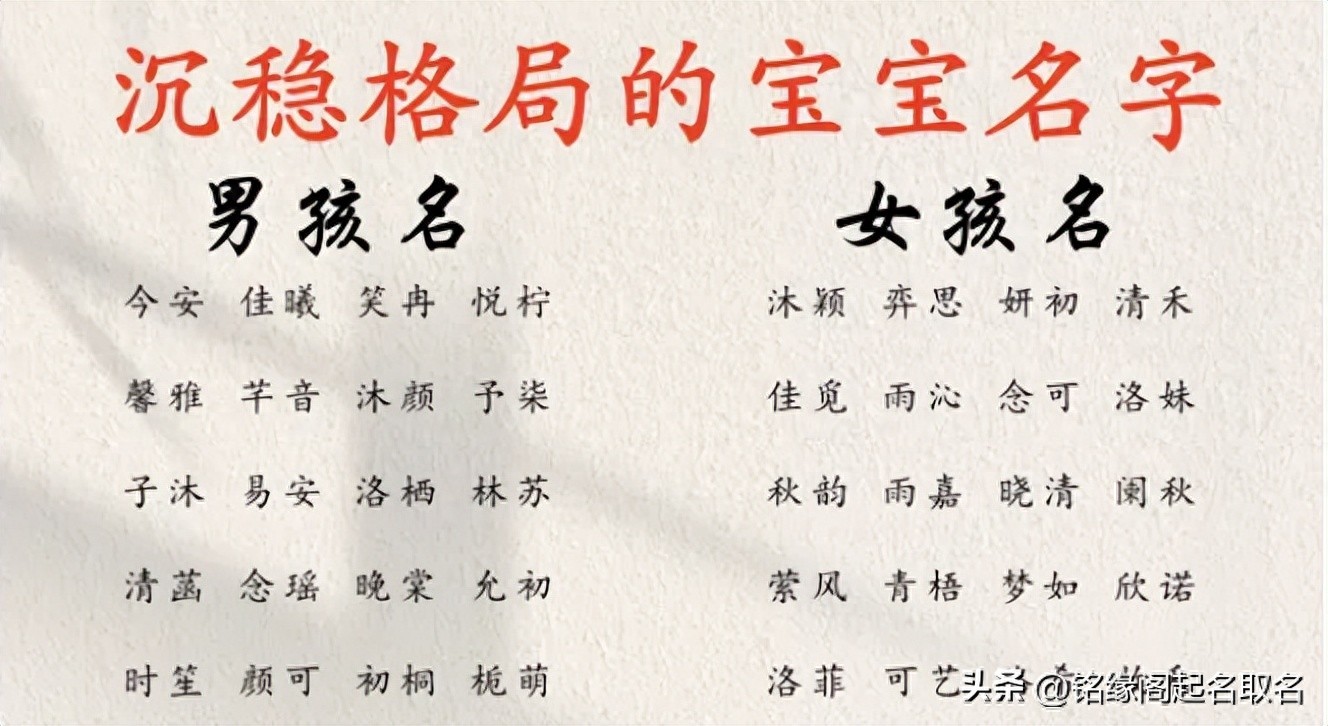 沉稳格局的宝宝名字
男孩名 女孩名
今安 佳曦 笑冉 悦柠 沐颖 弈思 妍初 清禾
馨雅 芊音 沐颜 予柒 佳觅 雨沁 念可 洛妹
子沐 易安 洛栖 林苏 秋韵 雨嘉 晓清 阑秋
清菡 念瑶 晚棠 允初 萦风 青梧 梦如 欣诺
时笙 颜可 初桐 栀萌 洛菲 可艺
头条 @铭缘阁起名取名